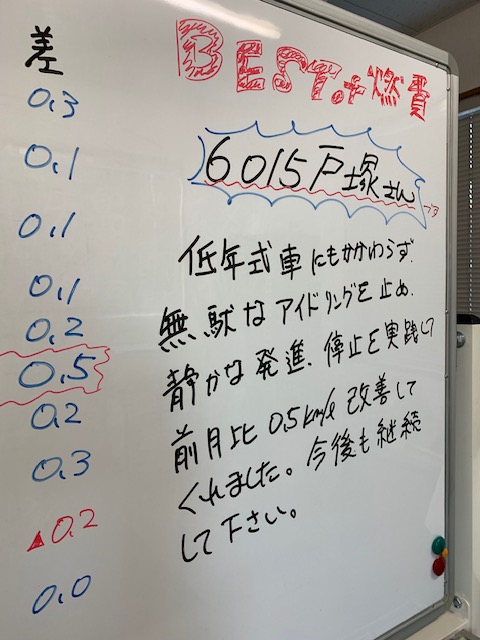 差
0,3
0,1
0,1
0,1
0,2
0,5
0,2
0,3
▲0,2
0,0
BEST.オ燃費
6015戸塚さん
低年式車にもかかわらず.
無駄なアイドリングを止め.
静かな発進、停止を実践して
前月比 0,5km/ℓ 改善して
くれました。今後も継続
して下さい。